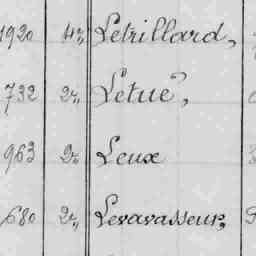 1920 4 Letrillard,
732 2 Létué,
963 2 Leux
680 2 Levavasseur,